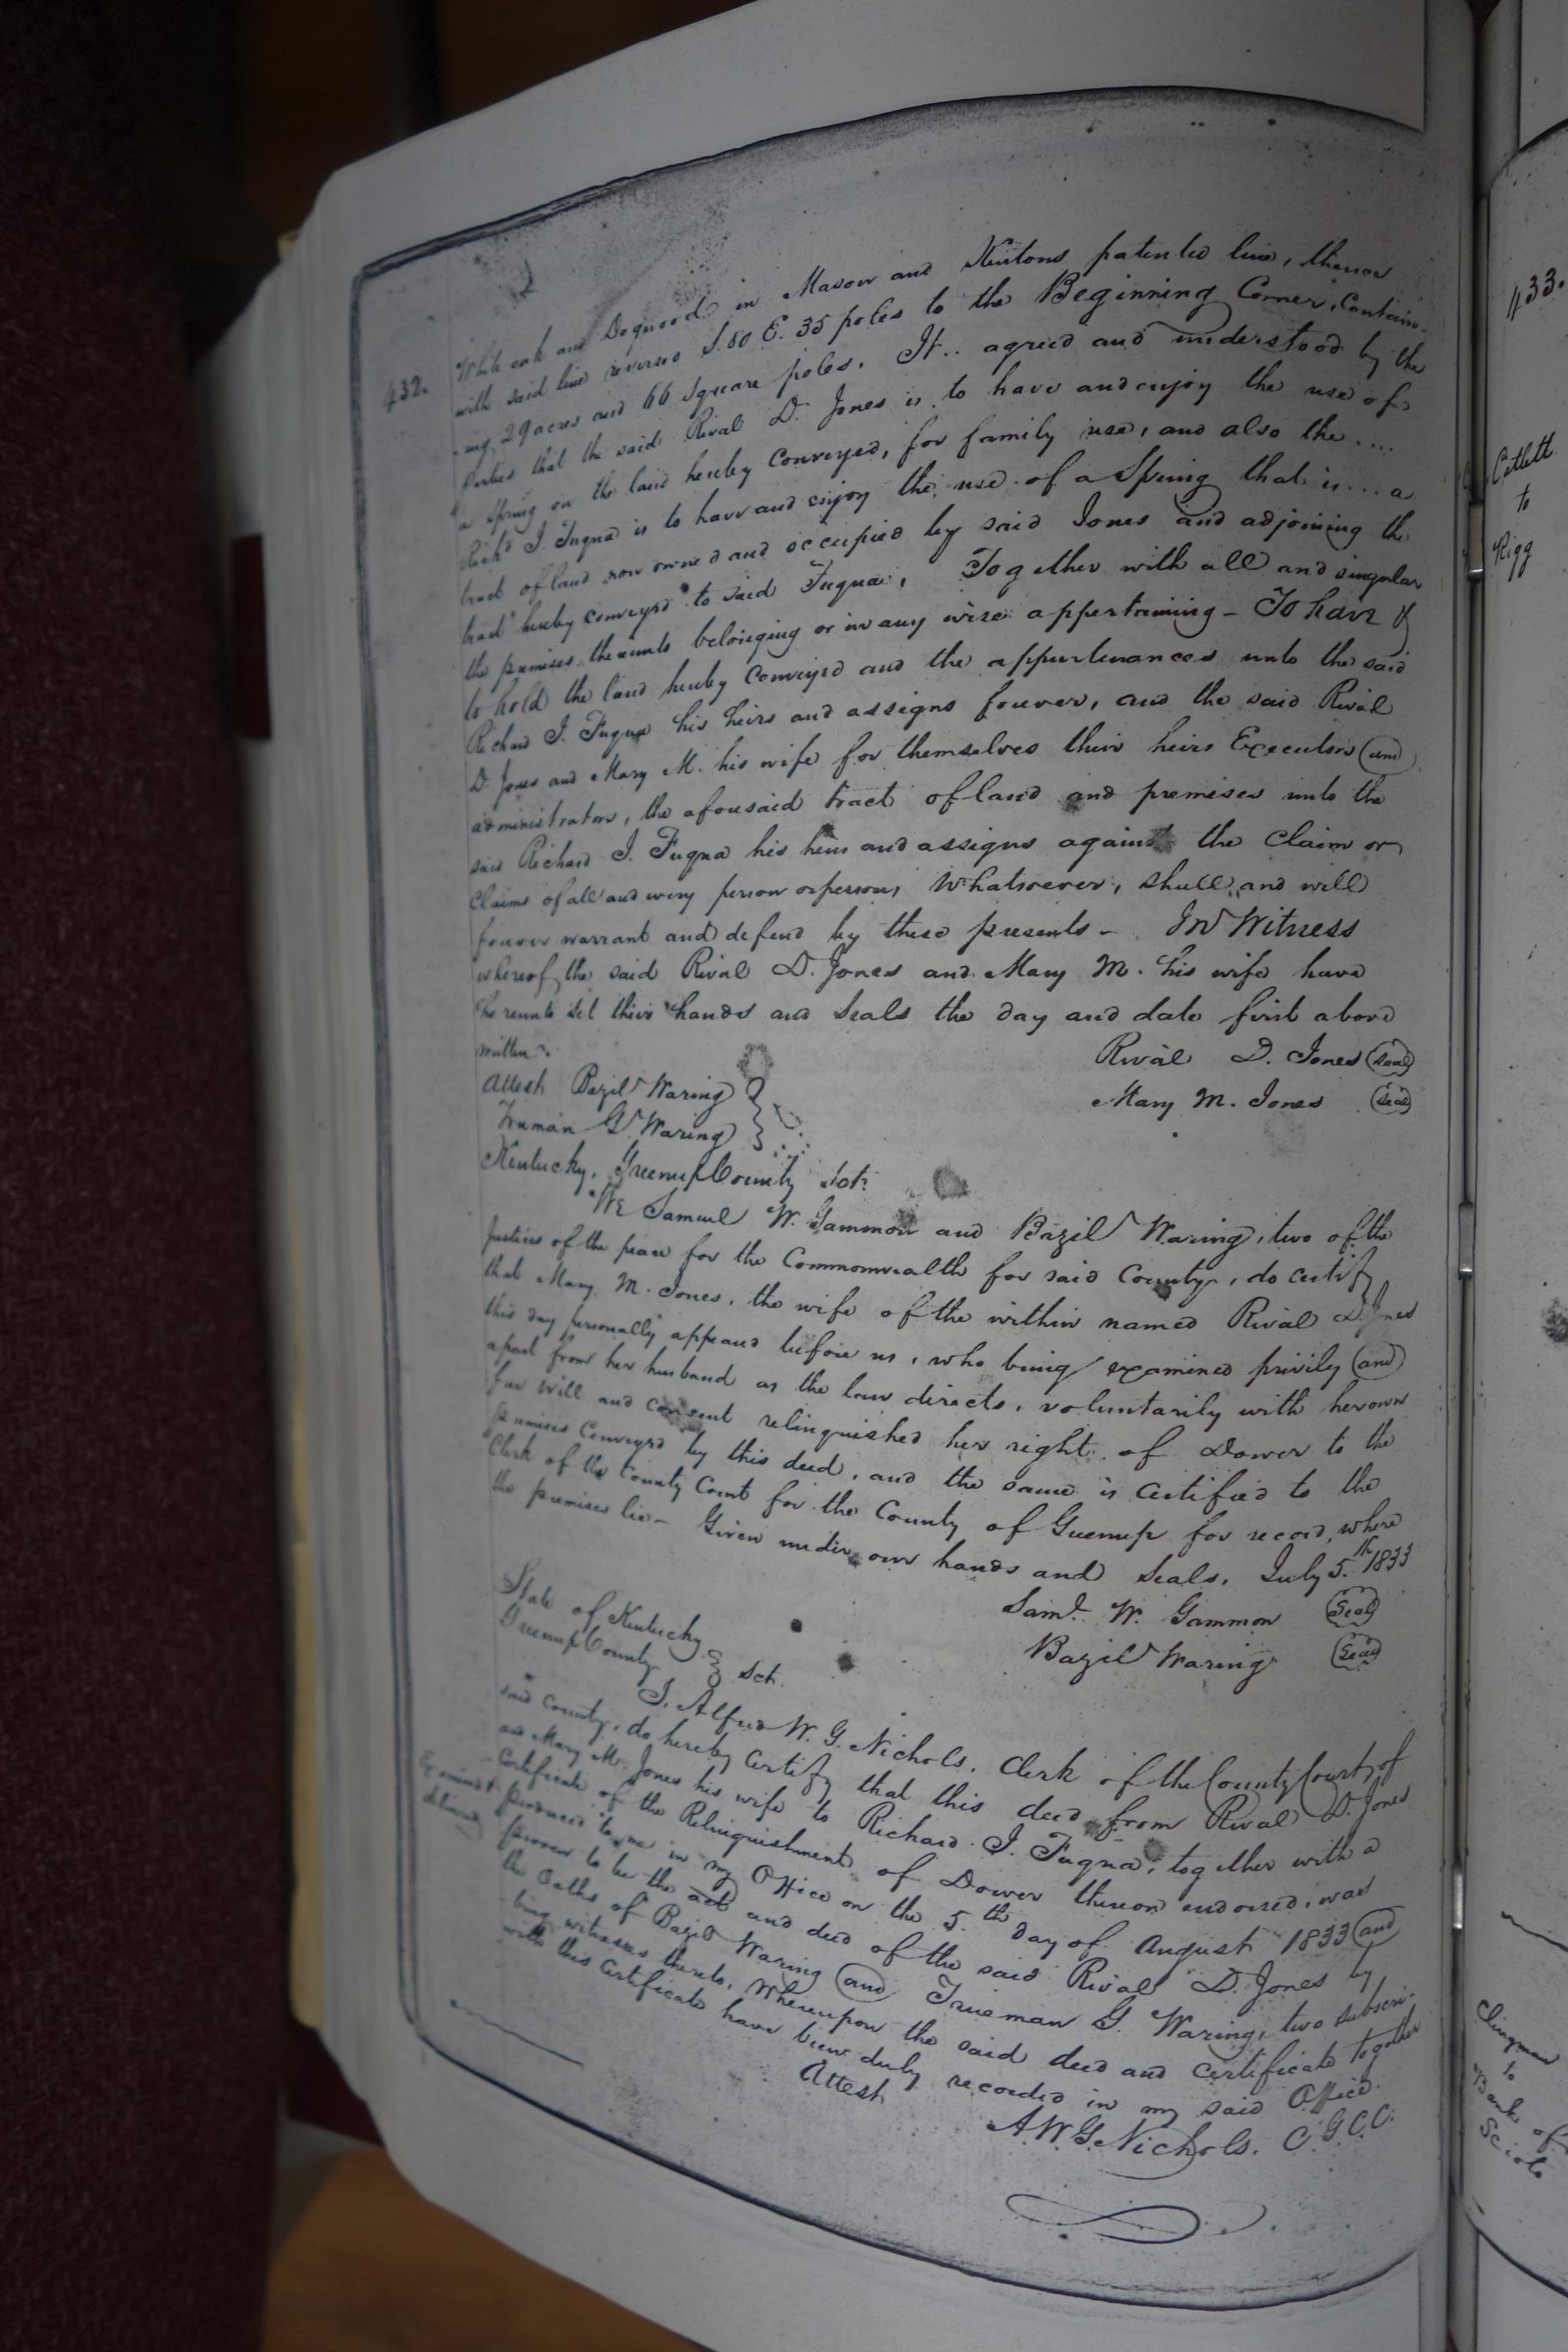 432.
White oak and Dogwood in Mason and Kentons patented line, thence
with said line reversed S. 80 E. 35 poles to the Beginning Corner, Contain-
-ing 29 acres and 66 square poles. It .. agreed and understood by the
Parties that the said Rival D. Jones is to have and enjoy the use of
a Spring on the land hereby Conveyed, for family use, and also the ....
Richd J. Fuqua is to have and enjoy the use of a Spring that is ... a
tract of land now owned and occupied by said Jones and adjoining the
tract hereby conveyed to said Fuqua, Together with all and singular
the premises thereunto belonging or in any wise appertaining - To have &
to hold the land hereby Conveyed and the appurtenances unto the said
Richard J. Fuqua his heirs and assigns forever, and the said Rival
D. Jones and Mary M. his wife for themselves their heirs Executors and
administrators, the aforesaid tract of land and premises unto the
said Richard J. Fuqua his heirs and assigns against the Claim or
Claims of all and every person or persons Whatsoever, shall and will
forever warrant and defend by these presents - In Witness
whereof, the said Rival D. Jones and Mary M. his wife have
hereunto set their hands and Seals the day and date first above
written.
Rival D. Jones Seal
Attest Bazil Waring
Mary M. Jones Seal
Truman G. Waring
Kentucky, Greenup County Sct.
We Samuel W. Gammon and Bazil Waring, two of the
Justices of the peace for the Commonwealth for said County, do certify
that Mary M. Jones, the wife of the within named Rival D. Jones
this day personally appeared before us, who being examined privily and
apart from her husband as the law directs, voluntarily with her own
free will and consent relinquished her right of Dower to the
premises Conveyed by this deed, and the same is Certified to the
Clerk of the County Court for the County of Greenup for record, where
the premises lie - Given under our hands and Seals, July 5.th 1833
Saml. W. Gammon Seal
Bazil Waring Seal
State of Kentucky
Greenup County Sct.
I. Alfred W. G. Nichols, Clerk of the County Court, of
said County, do hereby Certify that this deed from Rival D. Jones
and Mary M. Jones his wife to Richard J. Fuqua, together with a
Certificate of the Relinquishment of Dower thereon endorsed, was
produced to me in my Office on the 5.th day of August 1833 and
proven to be the act and deed of the said Rival D. Jones by
the Oaths of Bazil Waring and Trueman G. Waring, two subscri-
bing witnesses thereto, Whereupon the said deed and Certificate together
with this Certificate have been duly recorded in my said Office.
Attest
A. W. G. Nichols. C. G. C. C.
433.
Catlett
to
Rigg
Clingman
to
Bank of
Scioto